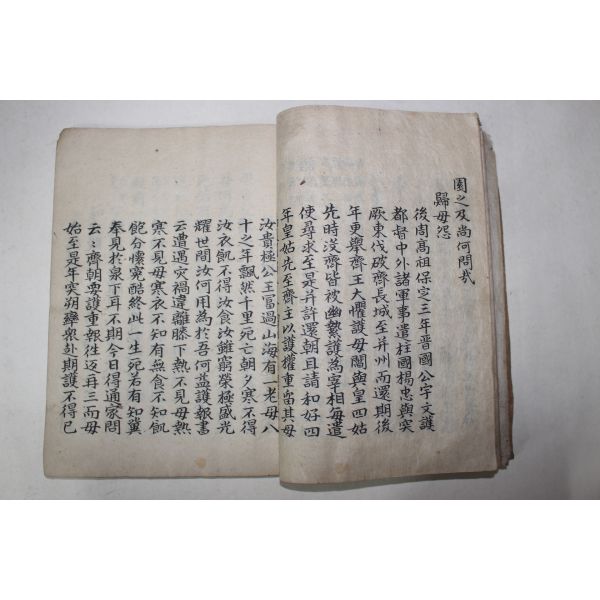 園之及尚何問哉
歸母怨
後周高祖保定三年晉國公宇文護
都督中外諸軍事遣柱國楊忠與突
厥東伐破齊長城至并州而還期後
年更舉齊王大懼護母閻與皇四姑
先時沒齊皆被幽縶護為宰相每遣
使尋求至是并許還朝且請和好四
年皇姑先至齊主以護權重留其母
汝貴極公王富過山海有一老母八
十之年飄然千里死亡朝夕寒不得
汝衣飢不得汝食汝雖窮榮極盛光
耀世間汝何用為於吾何益護報書
云遭遇灾禍違離膝下熱不見母熱
寒不見母寒衣不知有無食不知飢
飽分懷寃酷終此一生死若有知冀
奉見於泉下耳不期今日得通家問
云：齊朝要護重報徃返再三而母
始至是年突朔率衆赴期護不得已